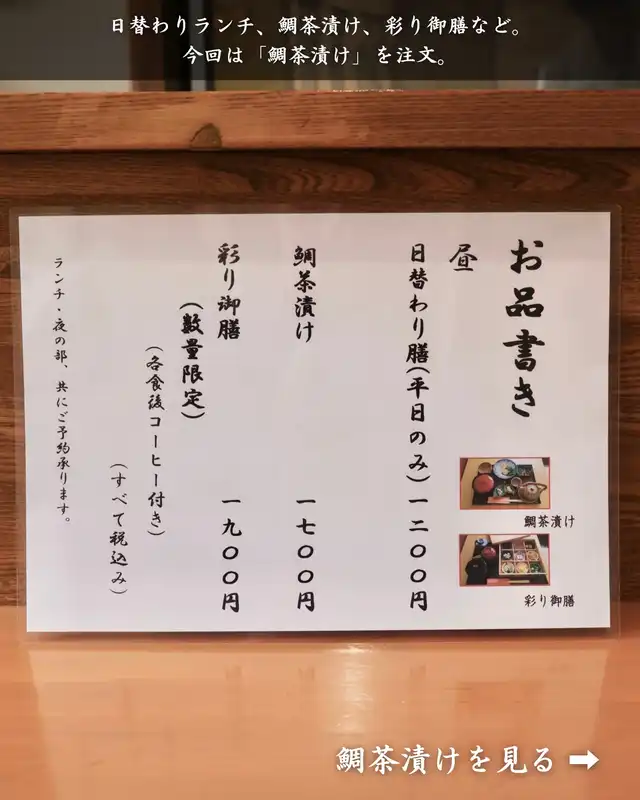 日替わりランチ、鯛茶漬け、彩り御膳など。
今回は「鯛茶漬け」を注文。
お品書き
昼
日替わり膳(平日のみ)一二〇〇円
鯛茶漬け 一七〇〇円
彩り御膳 一九〇〇円
(数量限定)
(各食後コーヒー付き)
(すべて税込み)
ランチ・夜の部、共にご予約承ります。
鯛茶漬け
彩り御膳
鯛茶漬けを見る ➡